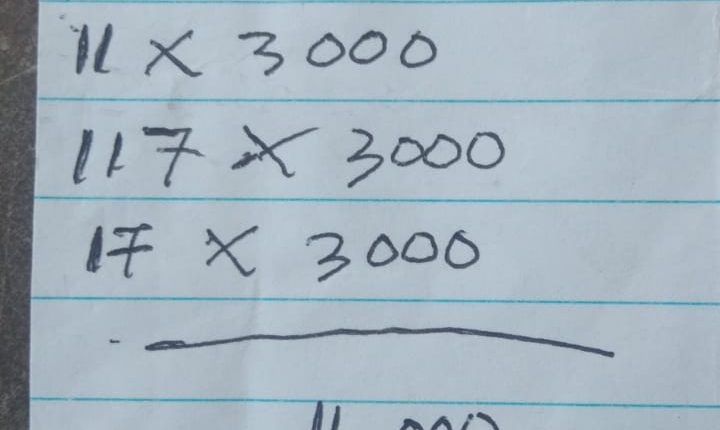 11 X 3000
117 X 3000
17 X 3000